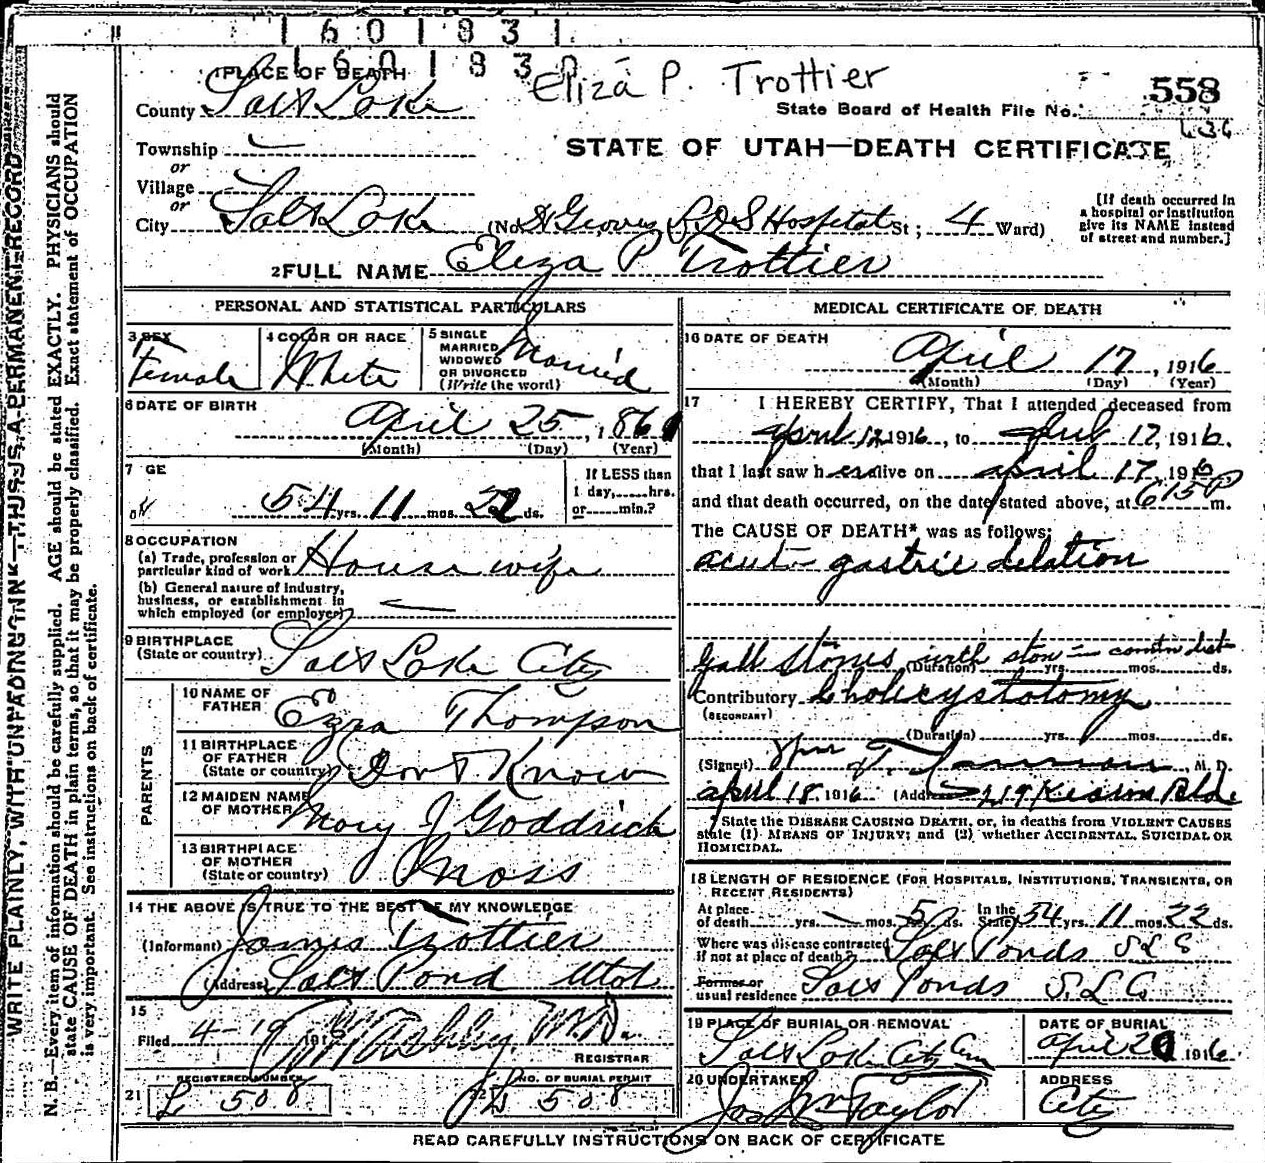 1 6 0 1 8 3 1
1 6 0 1 8 3 0
Eliza P. Trottier
558
1 PLACE OF DEATH
County Salt Lake
State Board of Health File No.
436
Township
or
Village
or
City Salt Lake
STATE OF UTAH—DEATH CERTIFICATE
(No. Groves L.D.S Hospital St; 4 Ward)
[If death occurred in
a hospital or institution
give its NAME instead
of street and number.]
2 FULL NAME Eliza P Trottier
PERSONAL AND STATISTICAL PARTICULARS
3 SEX
Female
4 COLOR OR RACE
White
5 SINGLE
MARRIED
WIDOWED
OR DIVORCED
(Write the word)
Married
6 DATE OF BIRTH
April 25, 1861
(Month) (Day) (Year)
7 GE
54 yrs. 11 mos. 22 ds.
If LESS than
1 day,......hrs.
or......min.?
8 OCCUPATION
(a) Trade, profession or
particular kind of work House wife
(b) General nature of Industry,
business, or establishment in
which employed (or employer)
9 BIRTHPLACE
(State or country) Salt Lake City
PARENTS
10 NAME OF
FATHER Ezra Thompson
11 BIRTHPLACE
OF FATHER
(State or country) Dont Know
12 MAIDEN NAME
OF MOTHER Mary J Goddrich
13 BIRTHPLACE
OF MOTHER
(State or country) Mass
14 THE ABOVE IS TRUE TO THE BEST OF MY KNOWLEDGE
(Informant) James Trottier
(Address) Salt Pond Utah
15
Filed 4-19 191 M.D.
REGISTRAR
21 REGISTERED NUMBER
L 508
22 NO. OF BURIAL PERMIT
L 508
MEDICAL CERTIFICATE OF DEATH
16 DATE OF DEATH
April 17, 1916
(Month) (Day) (Year)
17 I HEREBY CERTIFY, That I attended deceased from
April 12 1916, to April 17, 1916.
that I last saw her alive on April 17 1916
and that death occurred, on the date stated above, at 615 P m.
The CAUSE OF DEATH* was as follows:
acute gastric dilation
Gall Stones with
(Duration) yrs. mos. ds.
Contributory Cholecystotomy
(SECONDARY)
(Duration) yrs. mos. ds.
(Signed) Wm T. , M. D.
April 18, 1916 (Address) Kearns Bld
*State the DISEASE CAUSING DEATH, or, in deaths from VIOLENT CAUSES
state (1) MEANS OF INJURY; and (2) whether ACCIDENTAL, SUICIDAL OR
HOMICIDAL.
18 LENGTH OF RESIDENCE (FOR HOSPITALS, INSTITUTIONS, TRANSIENTS, OR
RECENT RESIDENTS)
At place
of death yrs. mos. 5 ds. In the State 54 yrs. 11 mos. 22 ds.
Where was disease contracted
if not at place of death? Salt Ponds S L C
Former or
usual residence Salt Ponds S.L C
19 PLACE OF BURIAL OR REMOVAL
Salt Lake City Cem
DATE OF BURIAL
April 20 1916
20 UNDERTAKER
Jos Wm Taylor
ADDRESS
City
READ CAREFULLY INSTRUCTIONS ON BACK OF CERTIFICATE
WRITE PLAINLY, WITH UNFADING INK—THIS IS A PERMANENT RECORD
N. B.—Every item of information should be carefully supplied. AGE should be stated EXACTLY. PHYSICIANS should
state CAUSE OF DEATH in plain terms, so that it may be properly classified. Exact statement of OCCUPATION
is very important. See instructions on back of certificate.